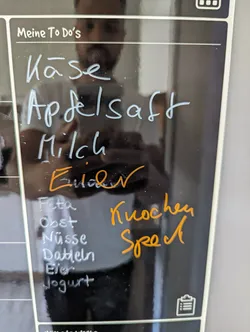 Meine To Do's
Käse
Apfelsaft
Milch
Feta
Obst
Nüsse
Datteln
Eier
Jogurt
Knochen
Speck